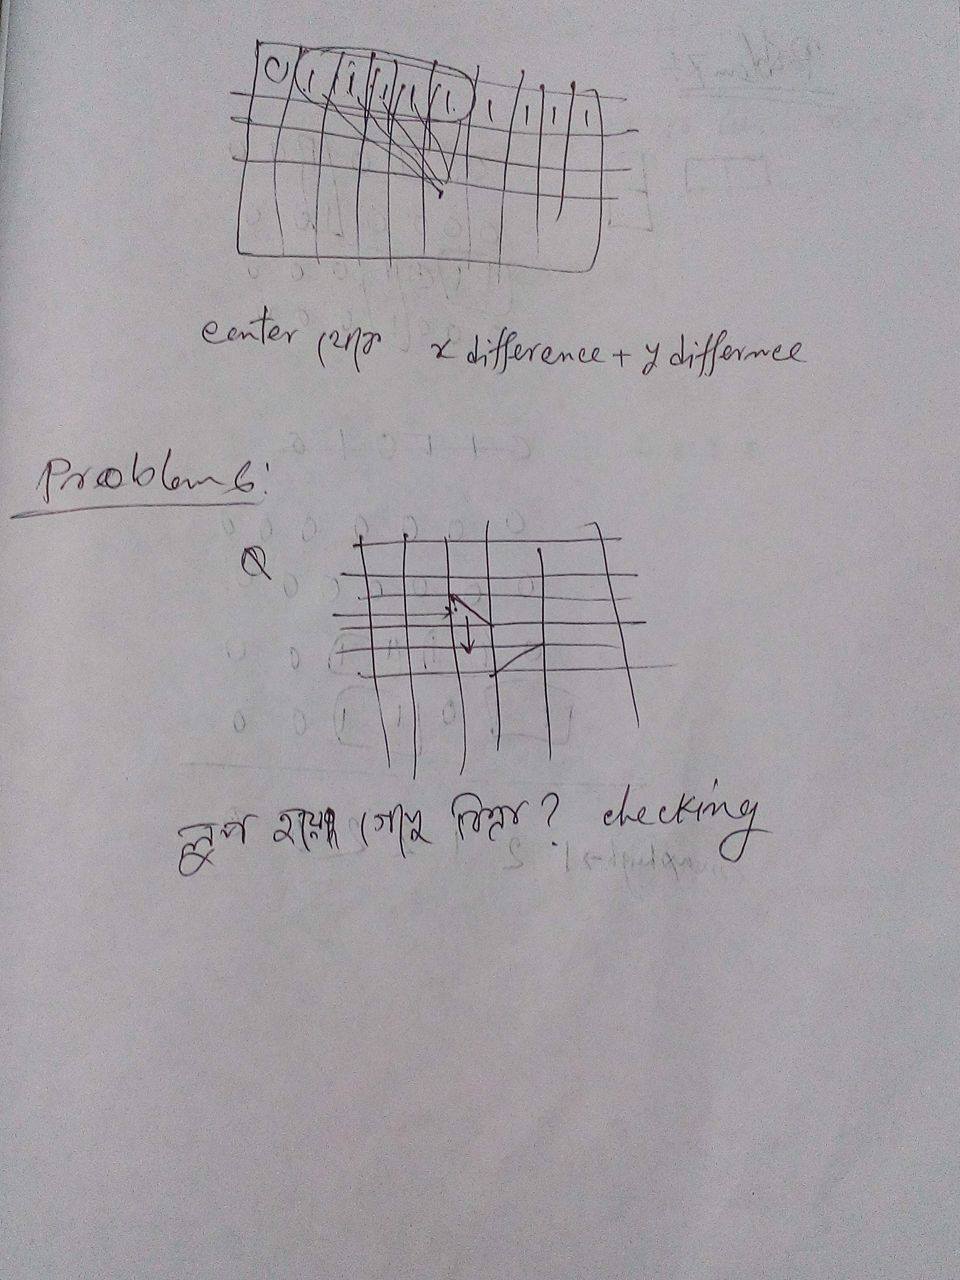 0 1 1 1 1 1 1 1 1 1
center থেকে x difference + y differnce
Problem 6:
Q
লুপ হয়ে গেলে কিনা? checking